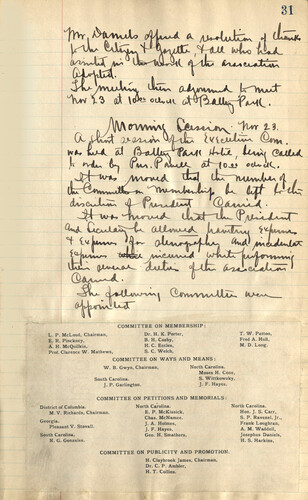 31
Mr. Daniels offered a resolution of thanks
to the Citizen & Gazette & all who had
assisted in the work of the association
Adopted.
The meeting then adjourned to meet
Nov 23 at 10 oclock at Battery Park.
Morning Session Nov 23.
A short session of the Executive Com.
was held at Battery Park Hotel, being called
to order by Pres. at 10 oclock.
It was moved that the number of
the Committee on Membership be left to the
discretion of President Carried.
It was moved that the President
and Secretary be allowed traveling expenses
& Expenses for stenographer and incidental
expenses incurred while performing
their general duties of the association
Carried.
The following Committees were
appointed
COMMITTEE ON MEMBERSHIP:
L. P. McLoud, Chairman, Dr. H. K. Porter, T. W. Patton,
E. B. Pinckney, B. H. Cosby, Fred A. Hull,
A. H. McQuilkin, H. C. Eccles, M. D. Long.
Prof. Clarence W. Mathews, S. C. Welch,
COMMITTEE ON WAYS AND MEANS:
W. B. Gwyn, Chairman, North Carolina.
Moses H. Cone,
South Carolina. S. Wittkowsky,
J. P. Garlington. J. F. Hayes.
COMMITTEE ON PETITIONS AND MEMORIALS:
District of Columbia. North Carolina. North Carolina.
M. V. Richards, Chairman. E. P. McKissick, Hon. J. S. Carr,
Georgia. Chas. McNamee, S. P. Ravenel, Jr.,
Pleasant V. Stovall. J. A. Holmes, Frank Loughran,
J. F. Hayes, A. M. Waddell,
South Carolina. Geo. H. Smathers, Josephus Daniels,
N. G. Gonzales. H. S. Harkins.
COMMITTEE ON PUBLICITY AND PROMOTION.
H. Claybrook James, Chairman,
Dr. C. P. Ambler,
H. T. Collins.